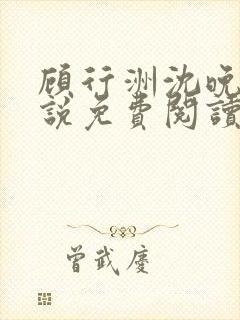 顾行洲沈晚
說免費閱讀
曾武慶